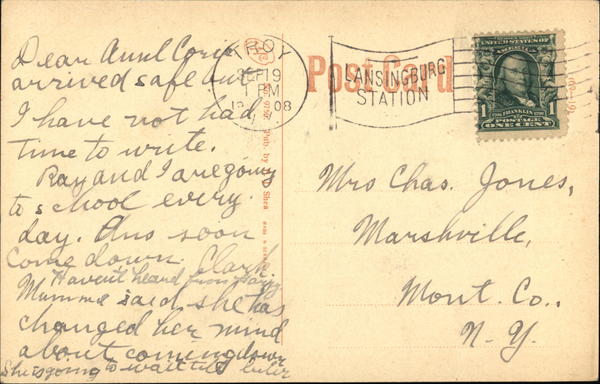 Dear Aunt Cora
arrived safe but
I have not had
time to write.
Ray and I are going
to school every
day. Ans soon
Come down. Clark.
Haven't heard from
Mumma said she has
changed her mind
about coming down
She is going to wait till later
TROY
SEP 19
1 PM
1908
Post Card
LANSINGBURG
STATION
UNITED STATES OF
AMERICA
1 FRANKLIN 1
POSTAGE
ONE CENT
Pub. by
Shea
Mrs Chas. Jones,
Marshville,
Mont. Co.,
N. Y.